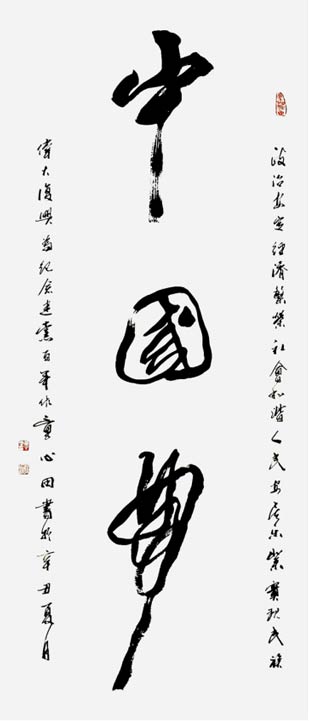 中國夢
政治安定經濟繁榮社會和諧人民安居樂業實現民族
偉大復興為紀念建黨百年作童心田書於辛丑夏月